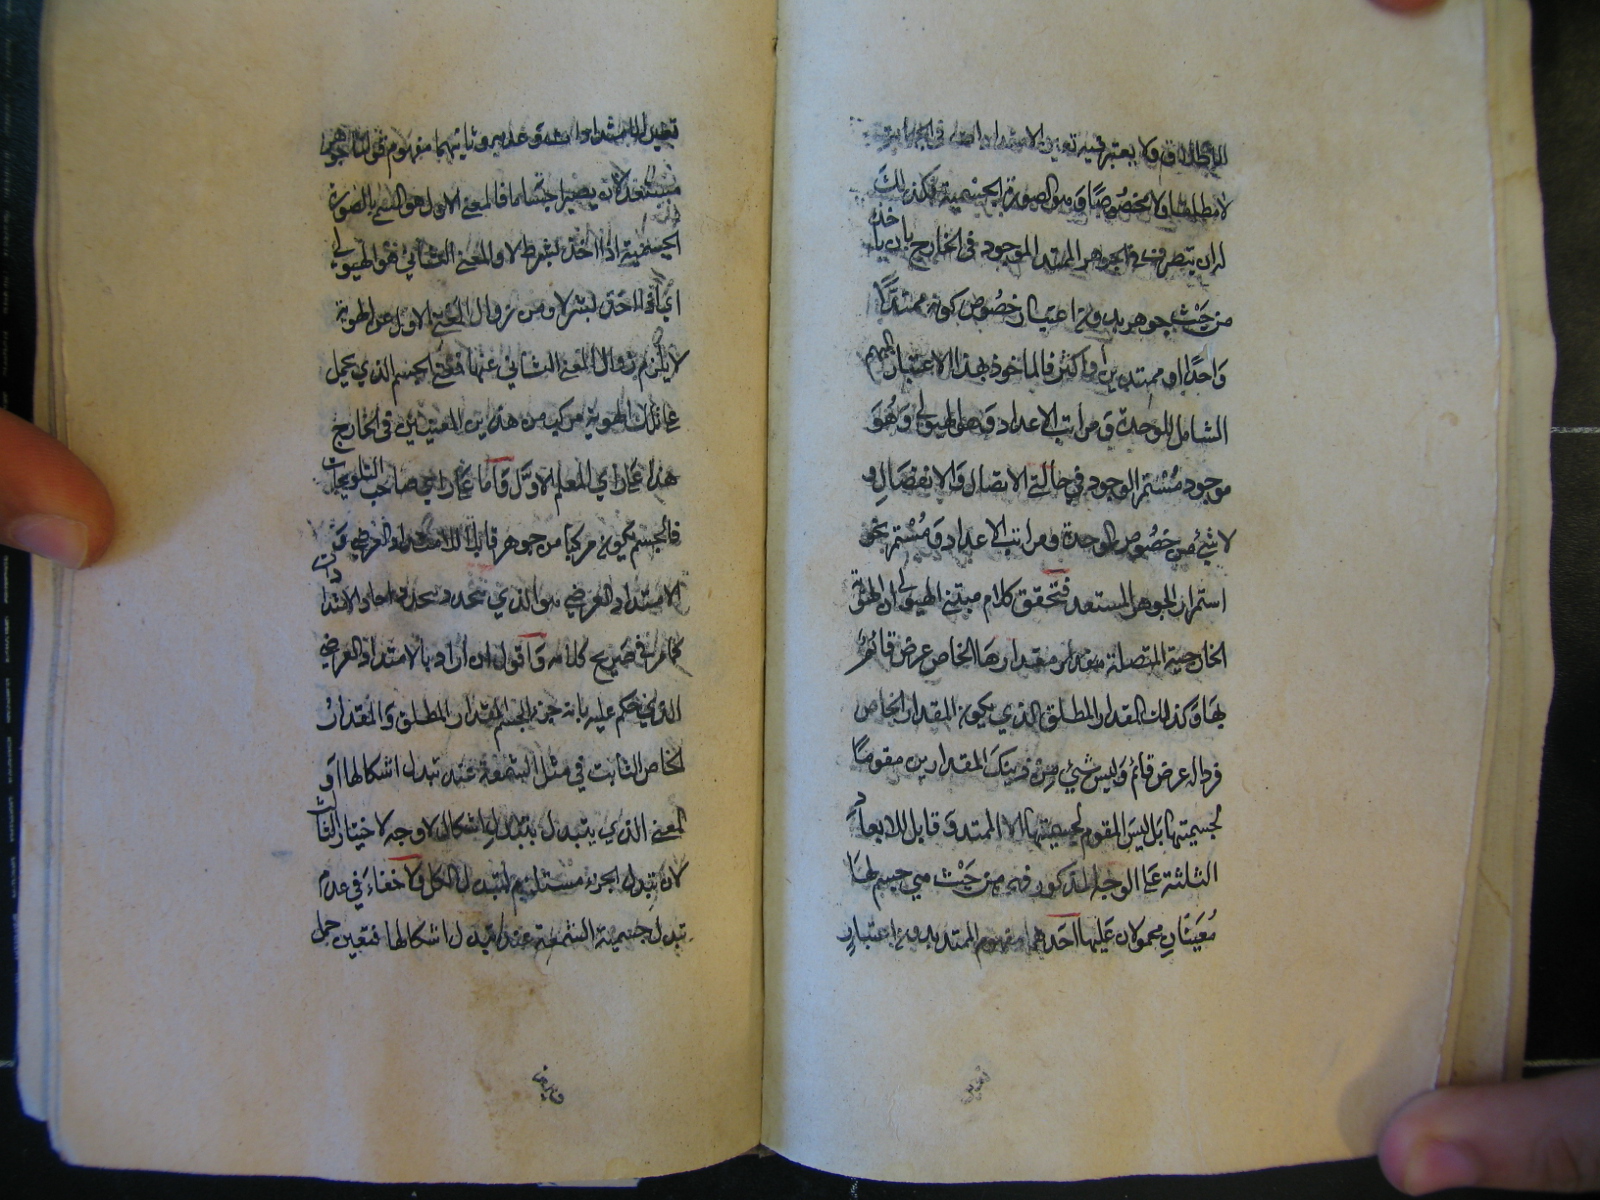 الاطلاق ولا يعتبر فيه تعين الامتداد
لا مطلقا ولا مخصوصا وهو الصورة الجسمية وكذلك
له ان يتصرف في الجوهر الممتد الموجود في الخارج بان ياخذه
من حيث جوهر بدون اعتبار خصوص كونه ممتدًا
وَاحدًا او ممتدين او اكثر فالماخوذ بهذا الاعتبار المبهم
الشامل للوحدة ومراتب الاعداد هو الهيولى وَهُوَ
موجود مُسْتمر الوجود في حالتي الاتصال وَالانفصَالِ و
لا شئ من خصُوص الوحدة ومراتب الاعداد ومُسْتمر بنحو
استمرار الجوهر المستعد فتحقق كلام مثبتي الهيولى ان الهوية
الخارجية المتصلة مقدار مقدارها الخاص عرض قائم
بهَا وَكذلك المقدار المطلق الذي يكون المقدار الخاص
فرداله عرض قائم وَليس شئ من ذينك المقدارين مقومًا
لجسميتها بَل ليسَ المقوم لجسميتها الا الممتد وَقابل للابعاد
الثلثة على الوجه المذكور فهي من حَيْث هي جسم لهَا
مُعَينَانِ محمولان عَليها احَدهما مفهوم الممتد بدون اعتبارِ
تعين
تعين الامتداد وعدمه وثانيهما مفهوم قولنا جوهر
مستعد لان يصير جسما فالمعنى الاول هو المسمى بالصورة
الجسمية اذا اخذ بشرط لا والمعنى الثاني هو الهيولى
اي اذا اخذ بشرط لا ومن زوال المعنى الاول عن الهوية
لا يلزم زوال المعنى الثاني عنها فمعنى الجسم الذي يحمل
على تلك الهوية مركب من هذين المعنيين في الخارج
هذا عَلى راي المعلم الاوَّل وَامّا عَلى راي صاحب التلويحات
فالجسم يكون مركبا من جوهر قابل للامتداد العرضي وَ
الامتداد العرضي هو الذي يتحدد بتحدد احاد الامتدادات
كما مر في صَريح كلامه وَاقول ان اراد بالامتداد العرضي
الذي حكم عليه بانه جزء الجسم المقدار المطلق وَالمقدارُ
الخاص الثابت في مثل الشمعة عند تبدل اشكالها اوَ
المعنى الذي يتبدل بتبدل اشكال لا وجه لاختيار الثالث
لان تبدل الجزء مستلزم لتبدل الكل ولا خفاءَ في عدم
تبدل جسمية الشمعة عند تبدل اشكالها فتعين حمل